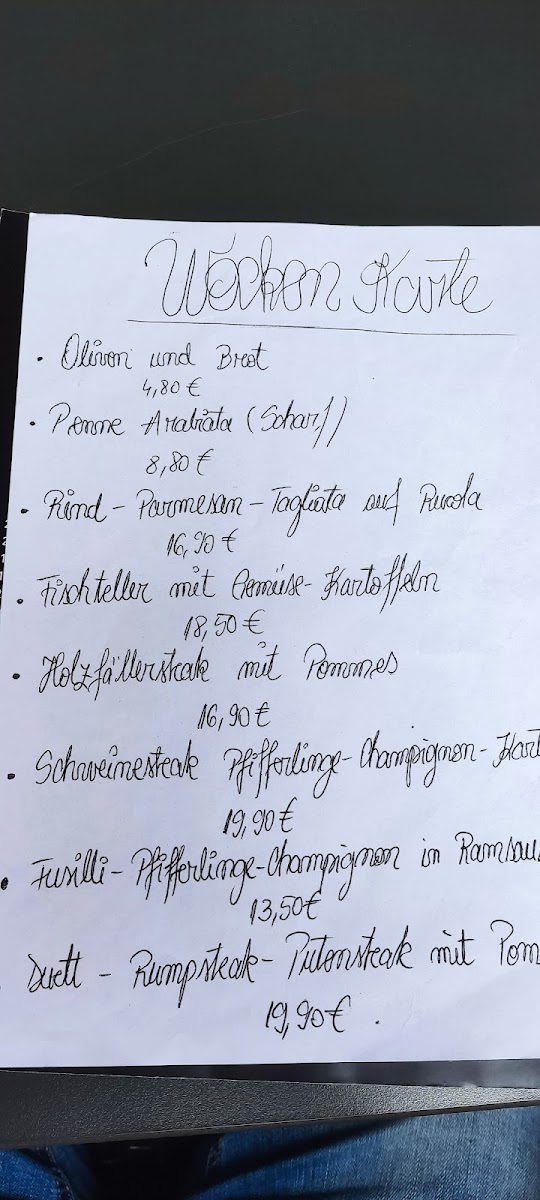 Wochen Karte
• Oliven und Brot
4,80 €
• Penne Arabiata (Scharf)
8,80 €
• Rind - Parmesan - Tagliata auf Rucola
16,90 €
• Fischteller mit Gemüse - Kartoffeln
18,50 €
• Holzfällersteak mit Pommes
16,90 €
• Schweinesteak Pfifferlinge - Champignon - Kart
19,90 €
• Fusilli - Pfifferlinge - Champignon in Ramsau
13,50 €
• Duett - Rumpsteak - Putensteak mit Pom
19,90 € .